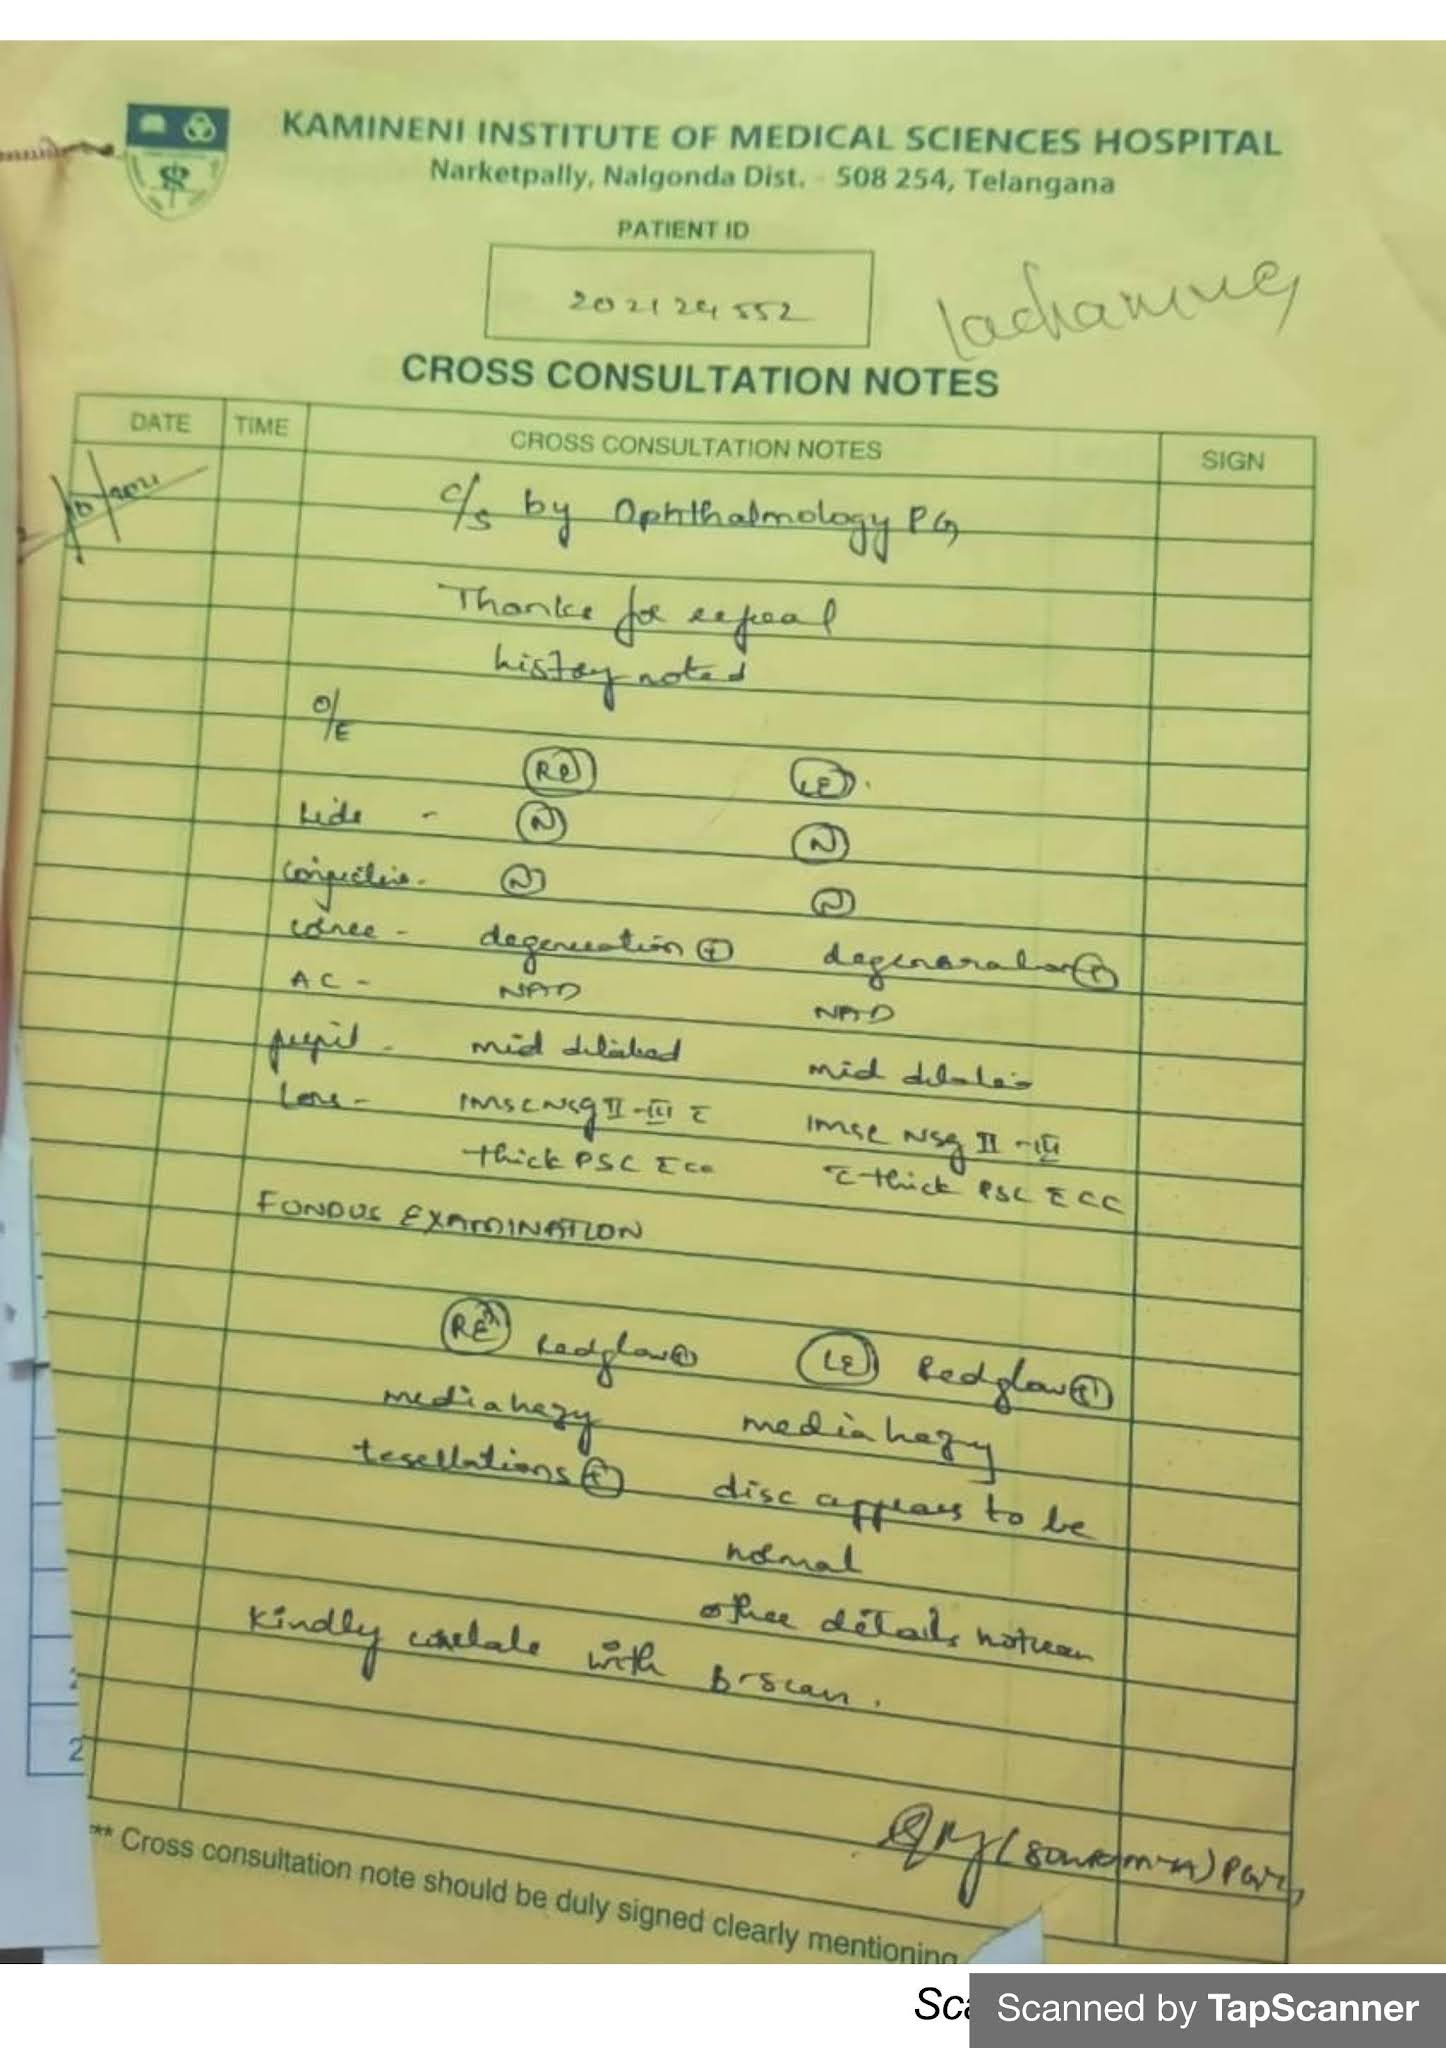 KAMINENI INSTITUTE OF MEDICAL SCIENCES HOSPITAL
Narketpally, Nalgonda Dist. - 508 254, Telangana
PATIENT ID
202124552
CROSS CONSULTATION NOTES
DATE TIME CROSS CONSULTATION NOTES SIGN
c/s by Ophthalmology PG
Thanks for referral
history noted
O/E
RE LE
Lids - N N
conjunctiva - N N
cornea - degeneration + degeneration +
AC - NAD NAD
pupil - mid dilated mid dilated
Lens - IMSC NSG II-III c IMSC NSG II-III
thick PSC c CC c thick PSC c CC
FUNDUS EXAMINATION
RE Redglow + LE Redglow +
media hazy media hazy
tesellations + disc appears to be
normal
other details not seen
Kindly corelate with B-Scan.
PG
** Cross consultation note should be duly signed clearly mentioning
2
Sca
Scanned by TapScanner